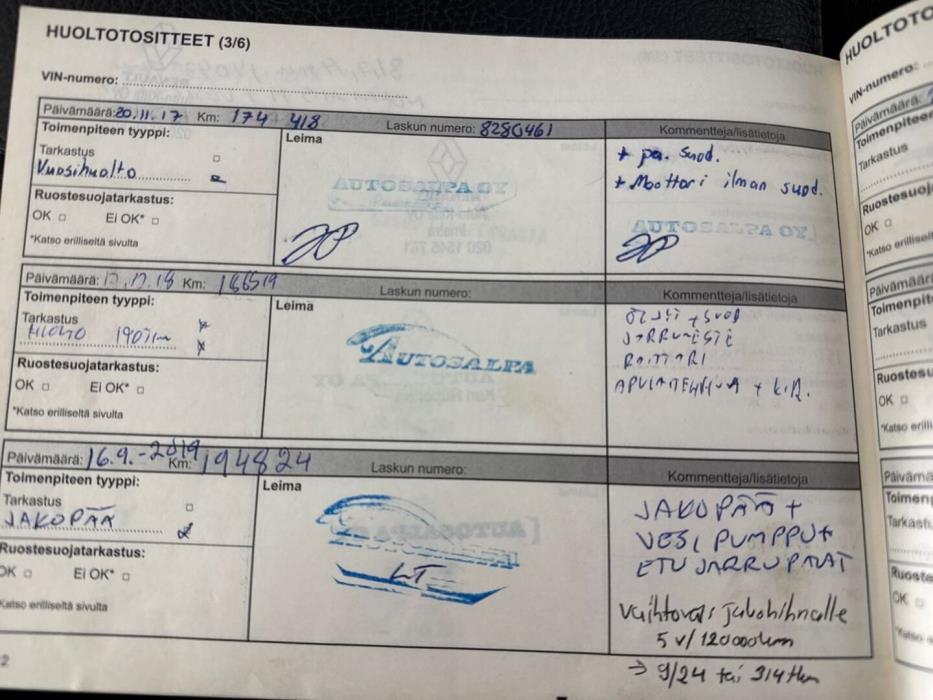 HUOLTOTOSITTEET (3/6)
VIN-numero:
Päivämäärä: 20.11.17 Km: 174 418 Laskun numero: 8280461 Kommentteja/lisätietoja
Toimenpiteen tyyppi:
Leima
Tarkastus
Vuosihuolto
Ruostesuojatarkastus:
OK Ei OK*
*Katso erilliseltä sivulta
AUTOSALPA OY
+ pa. suod.
+ Moottori ilman suod.
AUTOSALPA OY
Päivämäärä: Km: 186519 Laskun numero: Kommentteja/lisätietoja
Toimenpiteen tyyppi:
Leima
Tarkastus
HUOLTO 190tkm
Ruostesuojatarkastus:
OK Ei OK*
*Katso erilliseltä sivulta
AUTOSALPA
ÖLJY + SUOD
JARRUNESTE
RAITTARI
Päivämäärä: 16.9.-2019 Km: 194824 Laskun numero: Kommentteja/lisätietoja
Toimenpiteen tyyppi:
Leima
Tarkastus
JAKOPÄÄ
Ruostesuojatarkastus:
OK Ei OK*
Katso erilliseltä sivulta
AUTOSALPA
LT
JAKOPÄÄ +
VESI PUMPPU +
ETU JARRUPALAT
Vaihtoväli jakohihnalle
5 v/120000km
→ 9/24 tai 314tkm
2
HUOLTOTO
VIN-numero:
Päivämäärä:
Toimenpiteen
Tarkastus
Ruostesuoj
OK
*Katso erillise
Päivämäärä
Toimenpit
Tarkastus
Ruostesu
OK
*Katso erill
Päivämä
Toimen
Tarkast
Ruoste
OK